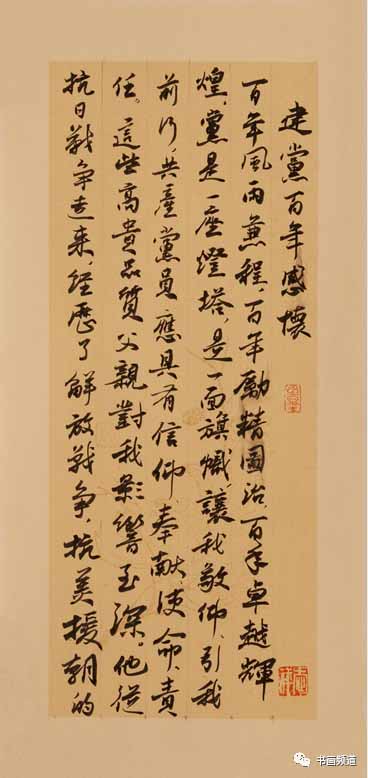 建黨百年感懷
百年風雨兼程，百年勵精圖治，百年卓越輝
煌，黨是一座燈塔，是一面旗幟，讓我敬仰，引我
前行，共產黨員應具有信仰、奉獻、使命、責
任。這些高貴品質父親對我影響至深。他從
抗日戰争走来，经歷了解放戰争，抗美援朝的
书画频道